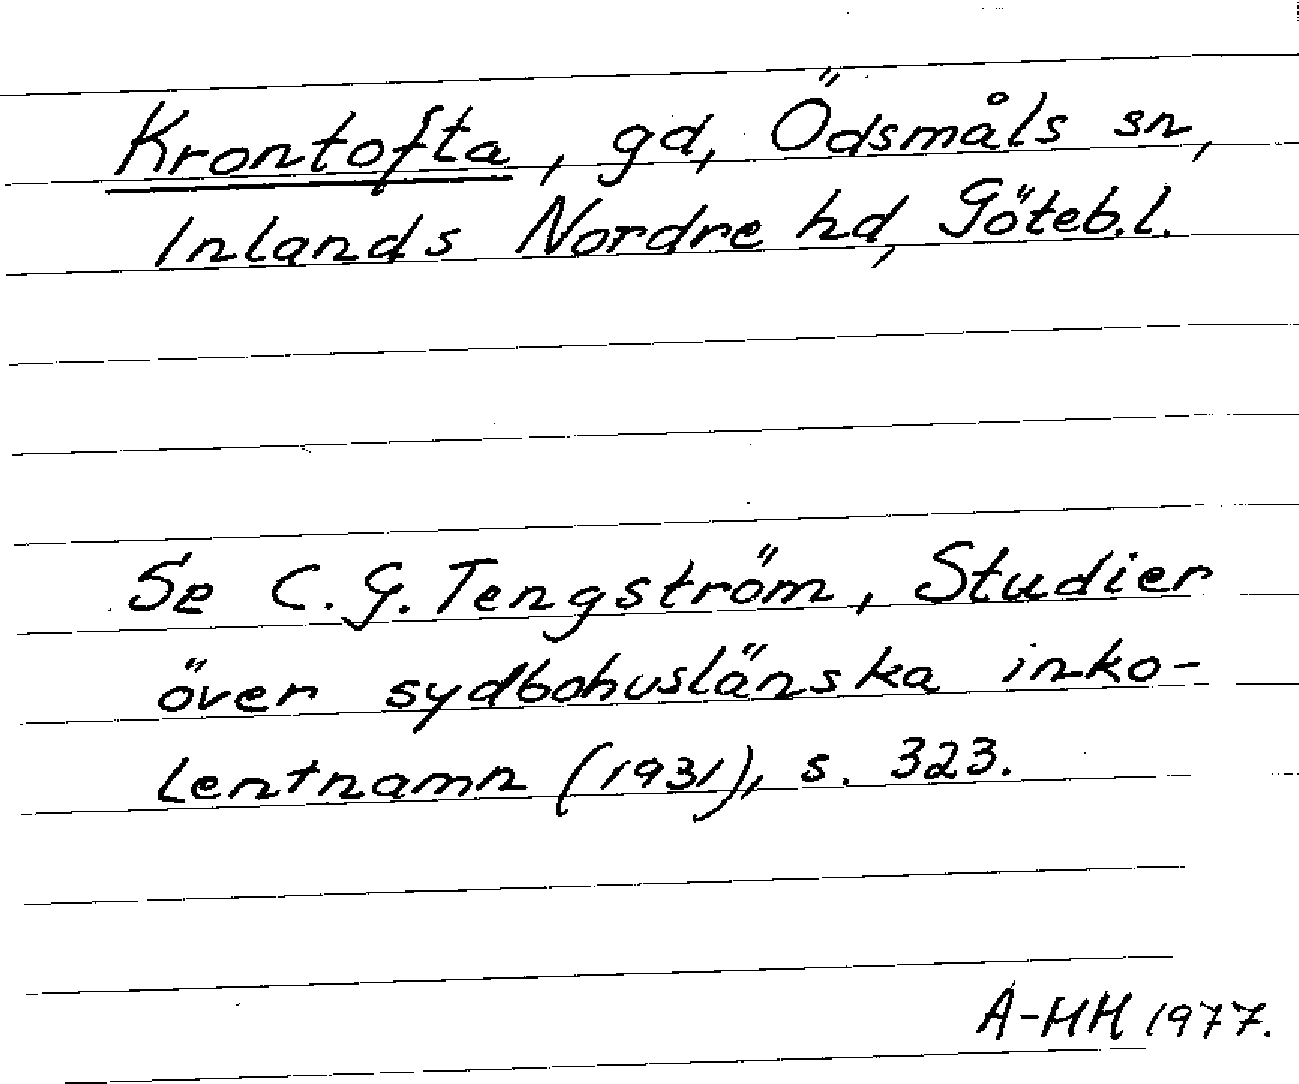 Krontofta, gd, Ödsmåls sn,
Inlands Nordre hd, Göteb.l.
Se C. G. Tengström, Studier
över sydbohuslänska inko-
lentnamn (1931), s. 323.
A-HH 1977.